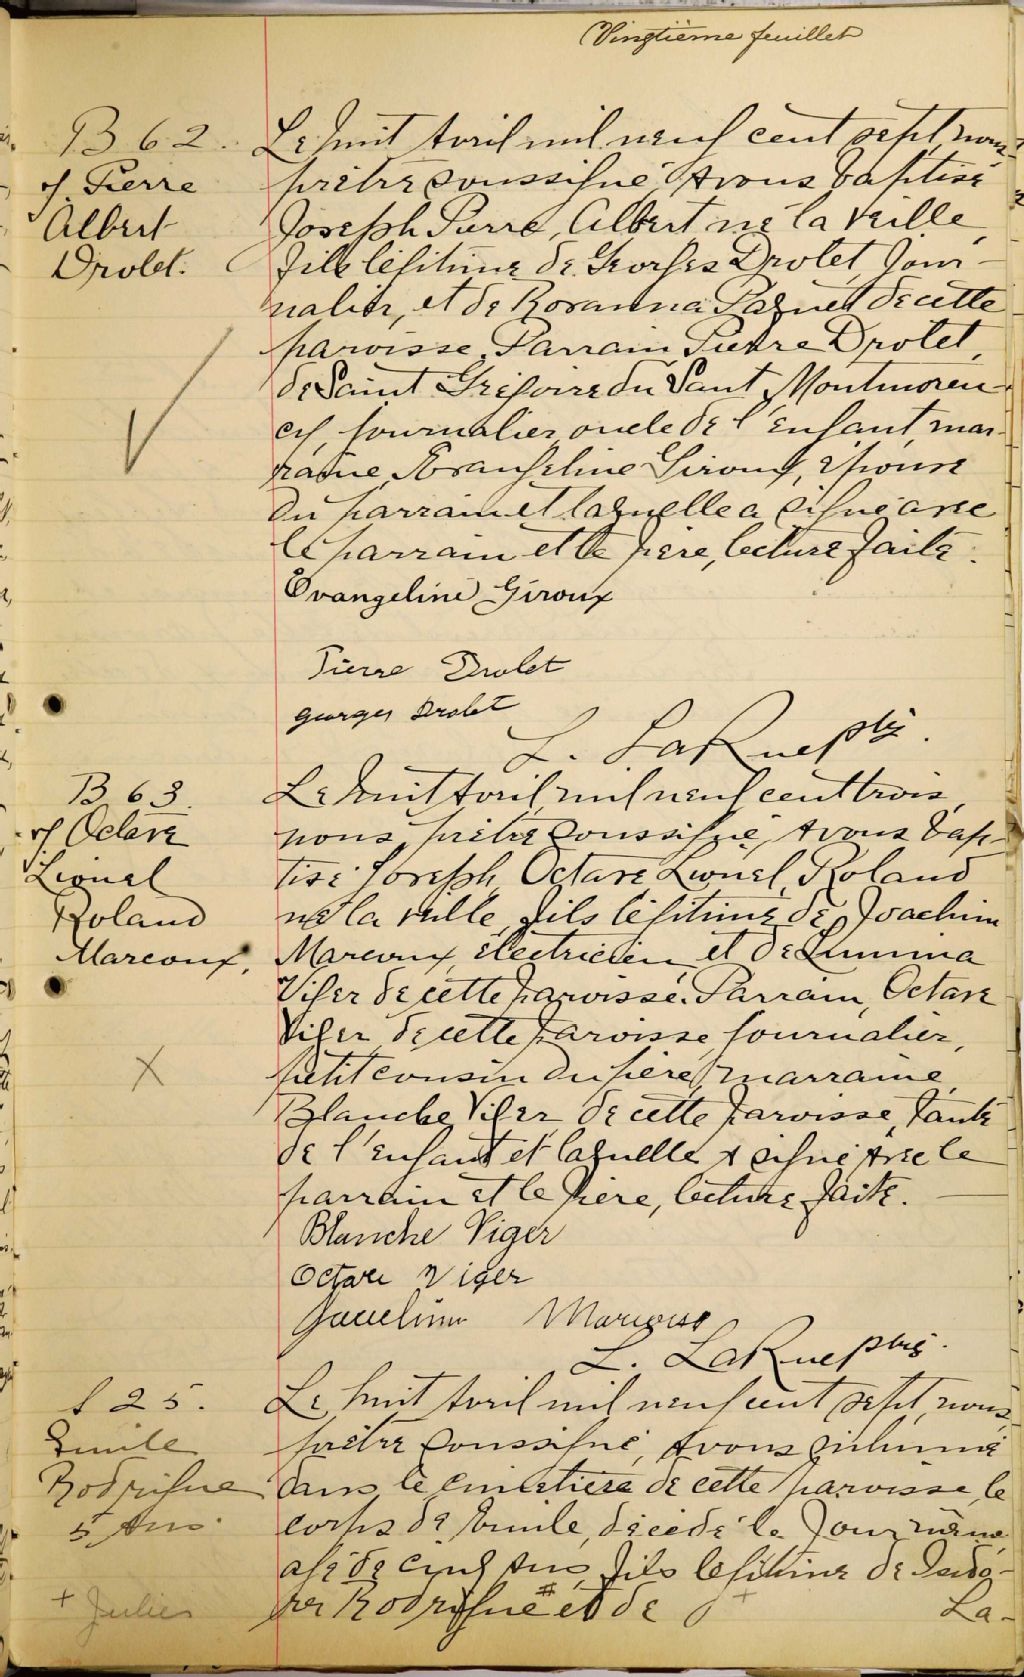 Vingtième feuillet
B 62.
J. Pierre
Albert
Drolet.
Le huit Avril mil neuf cent sept, nous
prêtre soussigné, Avons baptisé
Joseph Pierre, Albert né la veille,
fils légitime de Georges Drolet, jour-
nalier, et de Rosanna Paquet de cette
paroisse. Parrain, Pierre Drolet,
de Saint Grégoire du Saut Montmoren-
cy, journalier, oncle de l'enfant, mar-
raine, Evangeline Giroux, épouse
du parrain et laquelle a signé avec
le parrain et le père, lecture faite.
Evangeline Giroux
Pierre Drolet
georges Drolet
L. LaRue ptre.
B 63.
J. Octave
Lionel
Roland
Marcoux,
Le huit Avril, mil neuf cent trois,
nous, prêtre soussigné, Avons bap-
tisé Joseph, Octave Lionel, Roland
né la veille, fils légitime de Joachim
Marcoux, électricien, et de Lumina
Viger de cette paroisse. Parrain, Octave
Viger, de cette paroisse, journalier,
petit cousin du père, marraine,
Blanche Viger, de cette paroisse, tante
de l'enfant et laquelle A signé Avec le
parrain et le père, lecture faite.
Blanche Viger
Octave Viger
Marcoux
L. LaRue ptre.
S 25.
Emile
Rodrigue
5 Ans.
+ Julien
Le huit Avril mil neuf cent sept, nous,
prêtre soussigné, Avons inhumé
dans le cimetière de cette paroisse, le
corps de Emile, décédé le jour même
agé de cinq Ans, fils légitime de Isido-
re Rodrigue # et de + La-